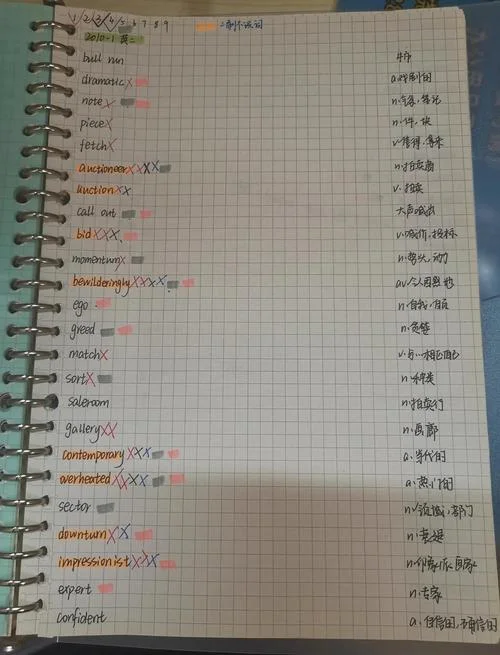 1 2 3 4 5 6 7 8 9
2010-1 英二
bull run 牛市
dramatic a.戏剧的
note n.
piece n.件,块
fetch v.售得,
auctioneer n.拍卖商
auction v.拍卖
call out 大声喊出
bid v.喊价,投标
momentum n.势头,动力
bewilderingly av.令人困惑地
ego n.自我,自负
greed n.贪婪
match v.与…相匹配
sort n.种类
saleroom n.拍卖行
gallery n.画廊
contemporary a.当代的
overheated a.热门的
sector n.领域,部门
downturn n.衰退
impressionist n.印象派画家
expert n.专家
confident a.自信的,